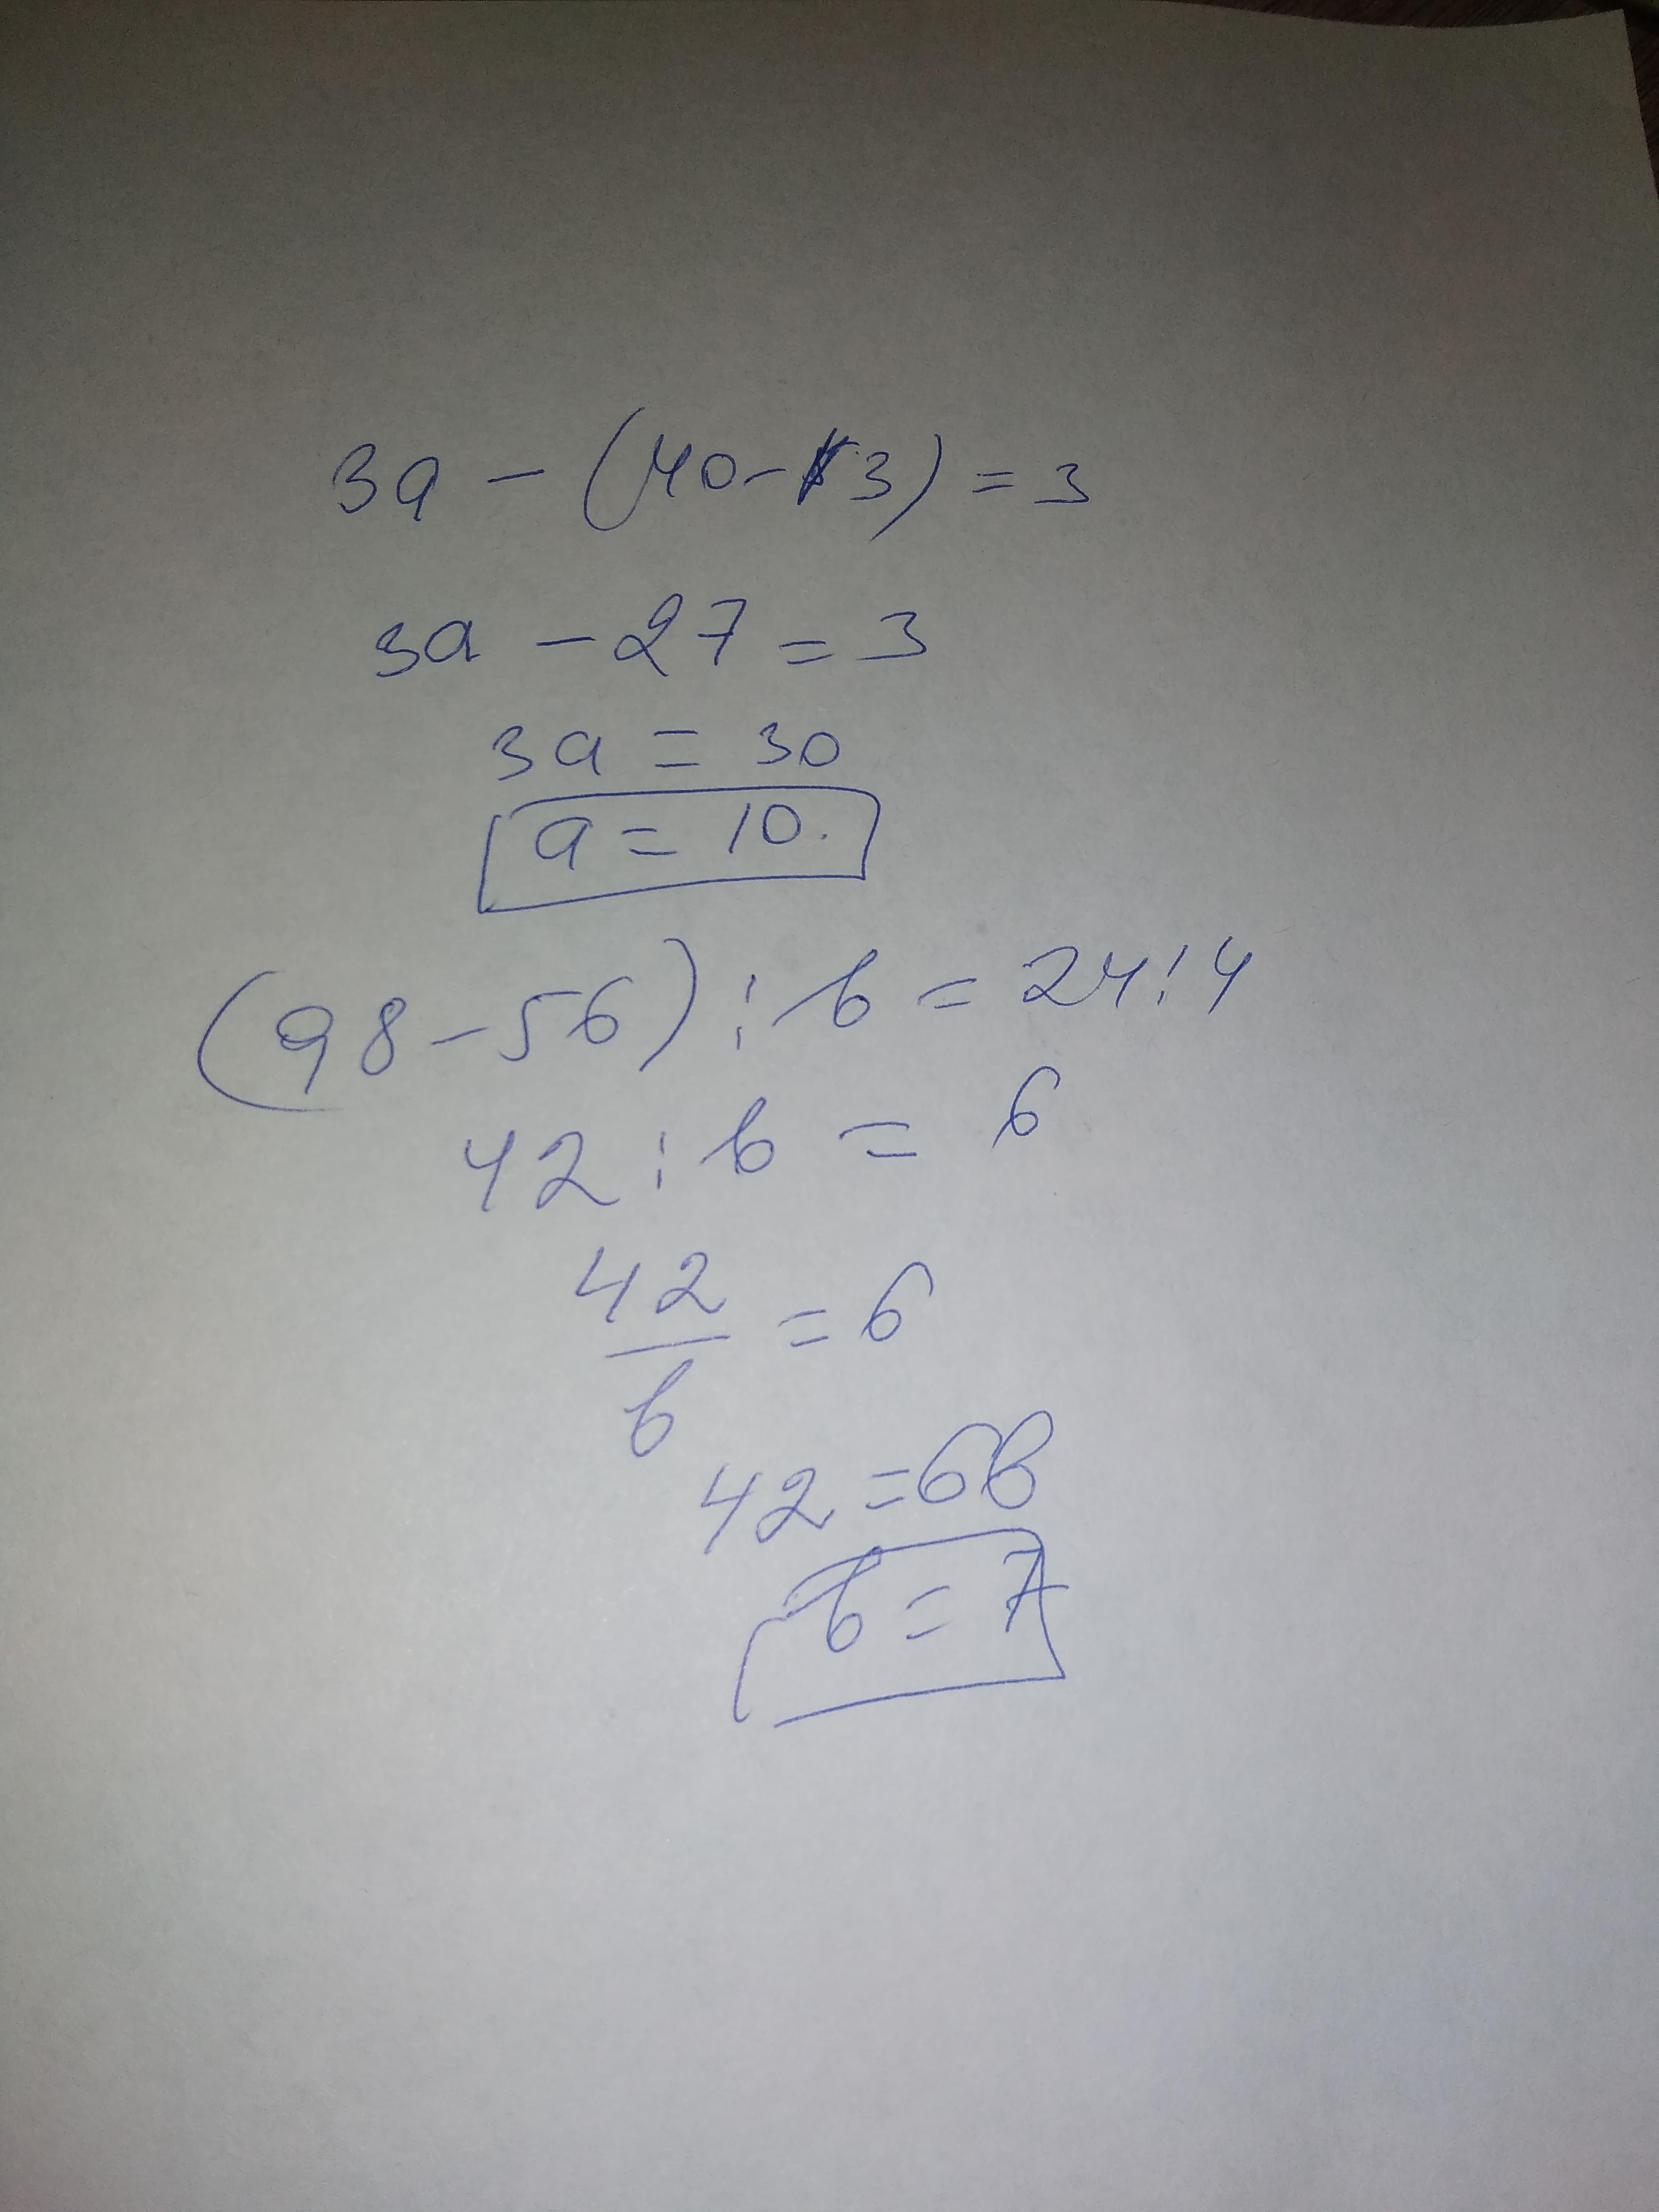 3a - (40-13) = 3
3a - 27 = 3
3a = 30
a = 10.
(98-56) : b = 24:4
42 : b = 6
42/b = 6
42 = 6b
b = 7